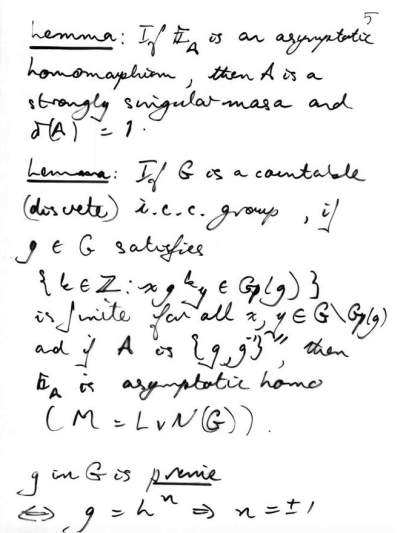 5
Lemma: If 𝔼_A is an asymptotic
homomorphism, then A is a
strongly singular masa and
δ(A) = 1.
Lemma: If G is a countable
(discrete) i.c.c. group, if
g ∈ G satisfies
{k ∈ ℤ: x g^k y ∈ Gp(g)}
is finite for all x, y ∈ G\Gp(g)
and if A is {g, g^{-1}}'', then
𝔼_A is asymptotic homo
(M = LvN(G)).
g in G is prime
⇔ g = h^n ⇒ n = ±1